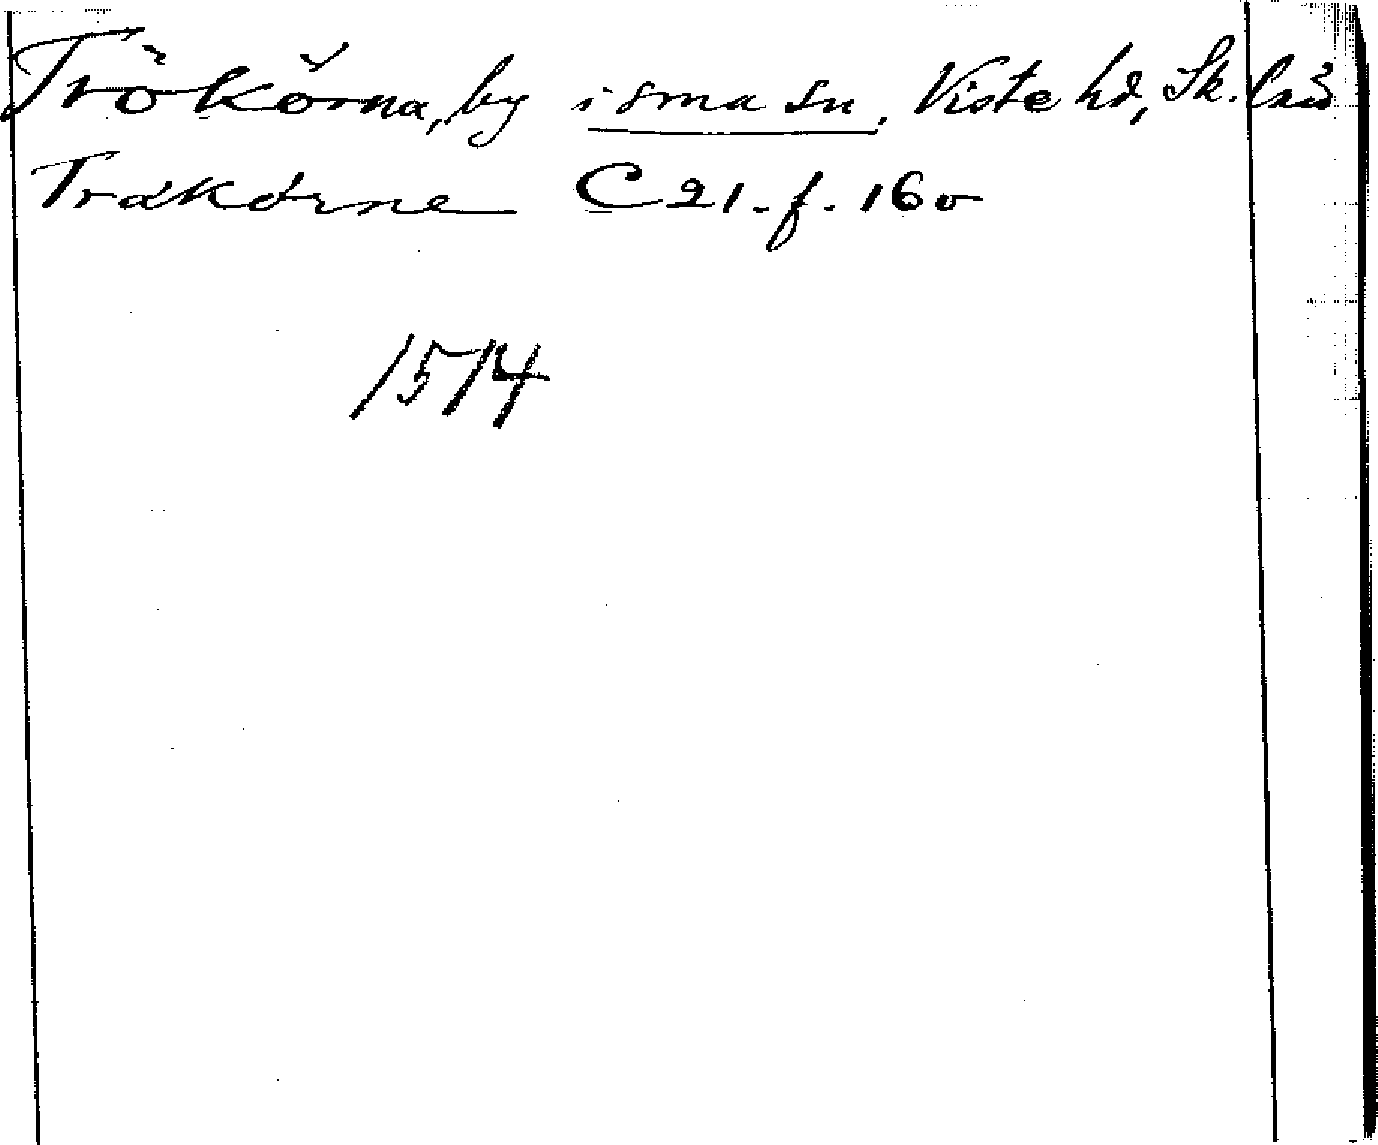 Trökörna, by i sma sn, Viste hd, Sk. län
Trakörne C 21. f. 16 v
1514